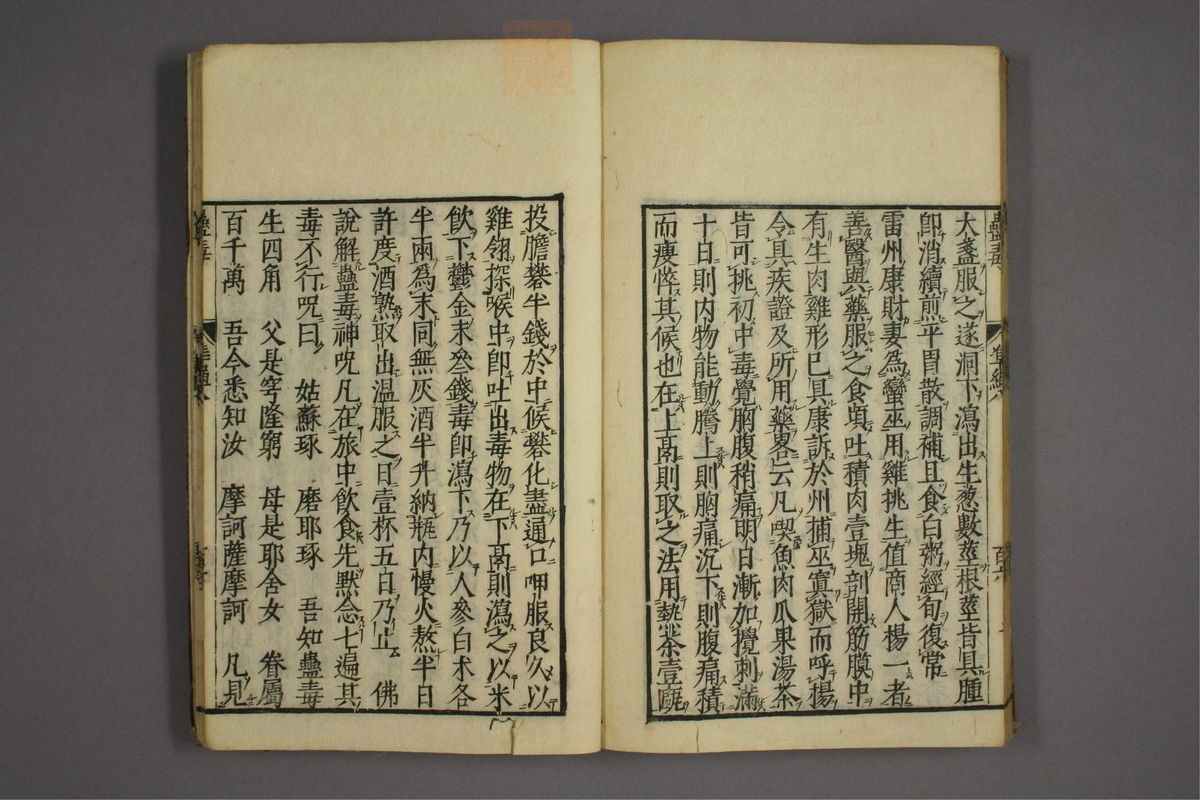 大盞服之遂洞下瀉出生葱數莖根莖皆具腫
卽消續煎平胃散調補且食白粥經旬復常
雷州康財妻爲蠻巫用雞挑生值商人楊一者
善醫與藥服之食頃吐積肉壹塊剖開筋膜中
有生肉雞形已具康訴於州捕巫寘獄而呼楊
令具疾證及所用藥畧云凡喫魚肉瓜果湯茶
皆可挑初中毒覺胸腹稍痛明日漸加攪刺滿
十日則内物能動騰上則胸痛沉下則腹痛積
而瘦悴其候也在上鬲則取之法用熱茶壹甌
投膽礬半錢於中候礬化盡通口呷服良久以
雞翎探喉中卽吐出毒物在下鬲則瀉之以米
飮下欝金末叄錢毒卽瀉下乃以人參白术各
半兩為末同無灰酒半升納瓶内慢火熬半日
許度酒熟取出温服之日壹杯五日乃止 佛
說解蠱毒神呪凡在旅中飮食先默念七遍其
毒不行呪曰 姑蘇琢 磨耶琢 吾知蠱毒
生四角 父是穹隆窮 母是耶舍女 眷屬
百千萬 吾今悉知汝 摩訶薩摩訶 凡見
蠱毒